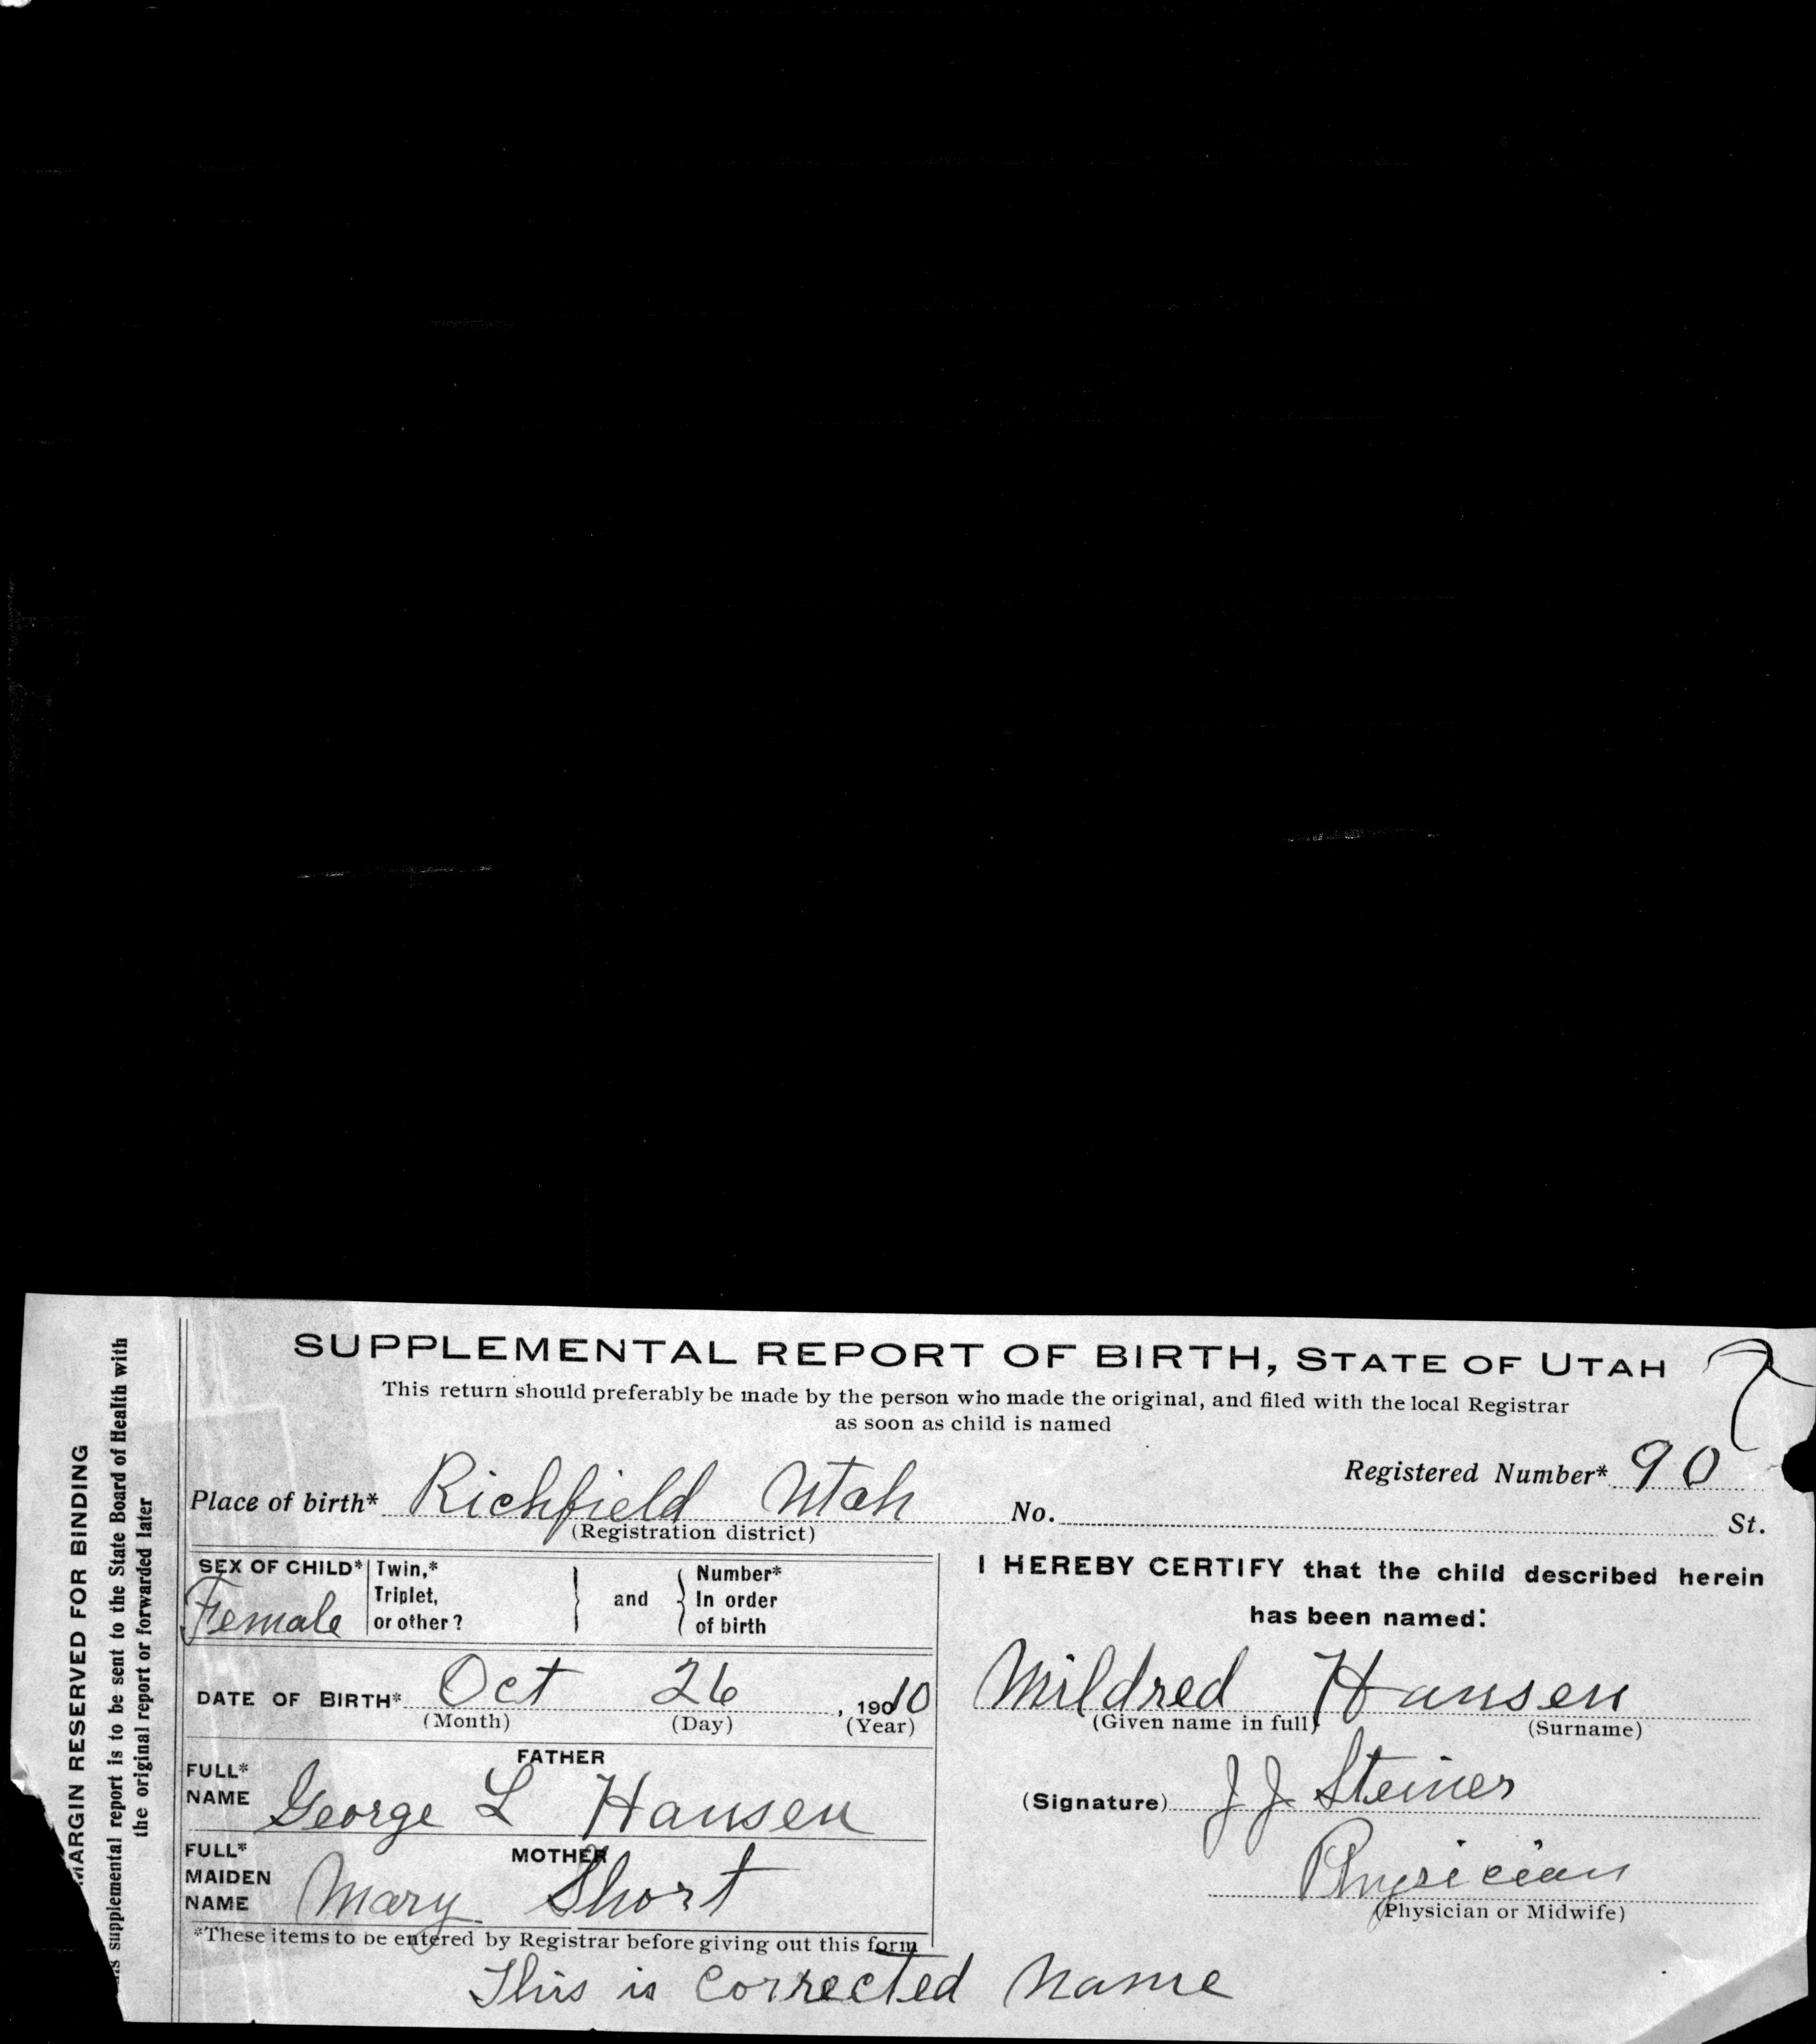 SUPPLEMENTAL REPORT OF BIRTH, STATE OF UTAH
This return should preferably be made by the person who made the original, and filed with the local Registrar
as soon as child is named
Registered Number* 90
Place of birth* Richfield Utah No. St.
(Registration district)
SEX OF CHILD* Female
Twin,*
Triplet,
or other?
and
Number*
In order
of birth
DATE OF BIRTH* Oct 26, 19010
(Month) (Day) (Year)
FATHER
FULL*
NAME George L Hansen
MOTHER
FULL*
MAIDEN
NAME Mary Short
*These items to be entered by Registrar before giving out this form
I HEREBY CERTIFY that the child described herein
has been named:
Mildred Hansen
(Given name in full) (Surname)
(Signature) J J Steiner
Physician
(Physician or Midwife)
This is corrected name
MARGIN RESERVED FOR BINDING
supplemental report is to be sent to the State Board of Health with
the original report or forwarded later